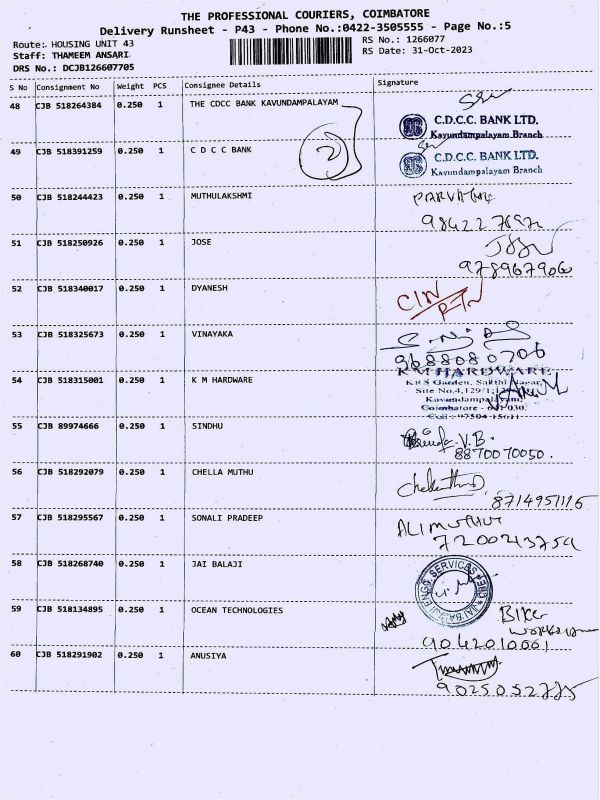 THE PROFESSIONAL COURIERS, COIMBATORE
Delivery Runsheet - P43 - Phone No.:0422-3505555 - Page No.:5
Route: HOUSING UNIT 43
RS No.: 1266077
Staff: THAMEEM ANSARI
RS Date: 31-Oct-2023
DRS No.: DCJB126607705
S No Consignment No Weight PCS Consignee Details Signature
48 CJB 518264384 0.250 1 THE CDCC BANK KAVUNDAMPALAYAM
C.D.C.C. BANK LTD.
Kavundampalayam Branch
2
49 CJB 518391259 0.250 1 C D C C BANK
C.D.C.C. BANK LTD.
Kavundampalayam Branch
50 CJB 518244423 0.250 1 MUTHULAKSHMI
51 CJB 518250926 0.250 1 JOSE
9789679060
52 CJB 518340017 0.250 1 DYANESH
CIN
RTN
53 CJB 518325673 0.250 1 VINAYAKA
9688080706
54 CJB 518315001 0.250 1 K M HARDWARE
K M HARDWARE
KRS Garden, Sakthi Nagar,
Site No.4,129/1,
Kavundampalayam,
Coimbatore - 641 030.
Cell : 97504 15611
55 CJB 89974666 0.250 1 SINDHU
V.B.
8870070050.
56 CJB 518292079 0.250 1 CHELLA MUTHU
8714951116
57 CJB 518295567 0.250 1 SONALI PRADEEP
7200213759
58 CJB 518268740 0.250 1 JAI BALAJI
JAI BALAJI ENGG. SERVICES CBE
59 CJB 518134895 0.250 1 OCEAN TECHNOLOGIES
9042010001
60 CJB 518291902 0.250 1 ANUSIYA
9025052775